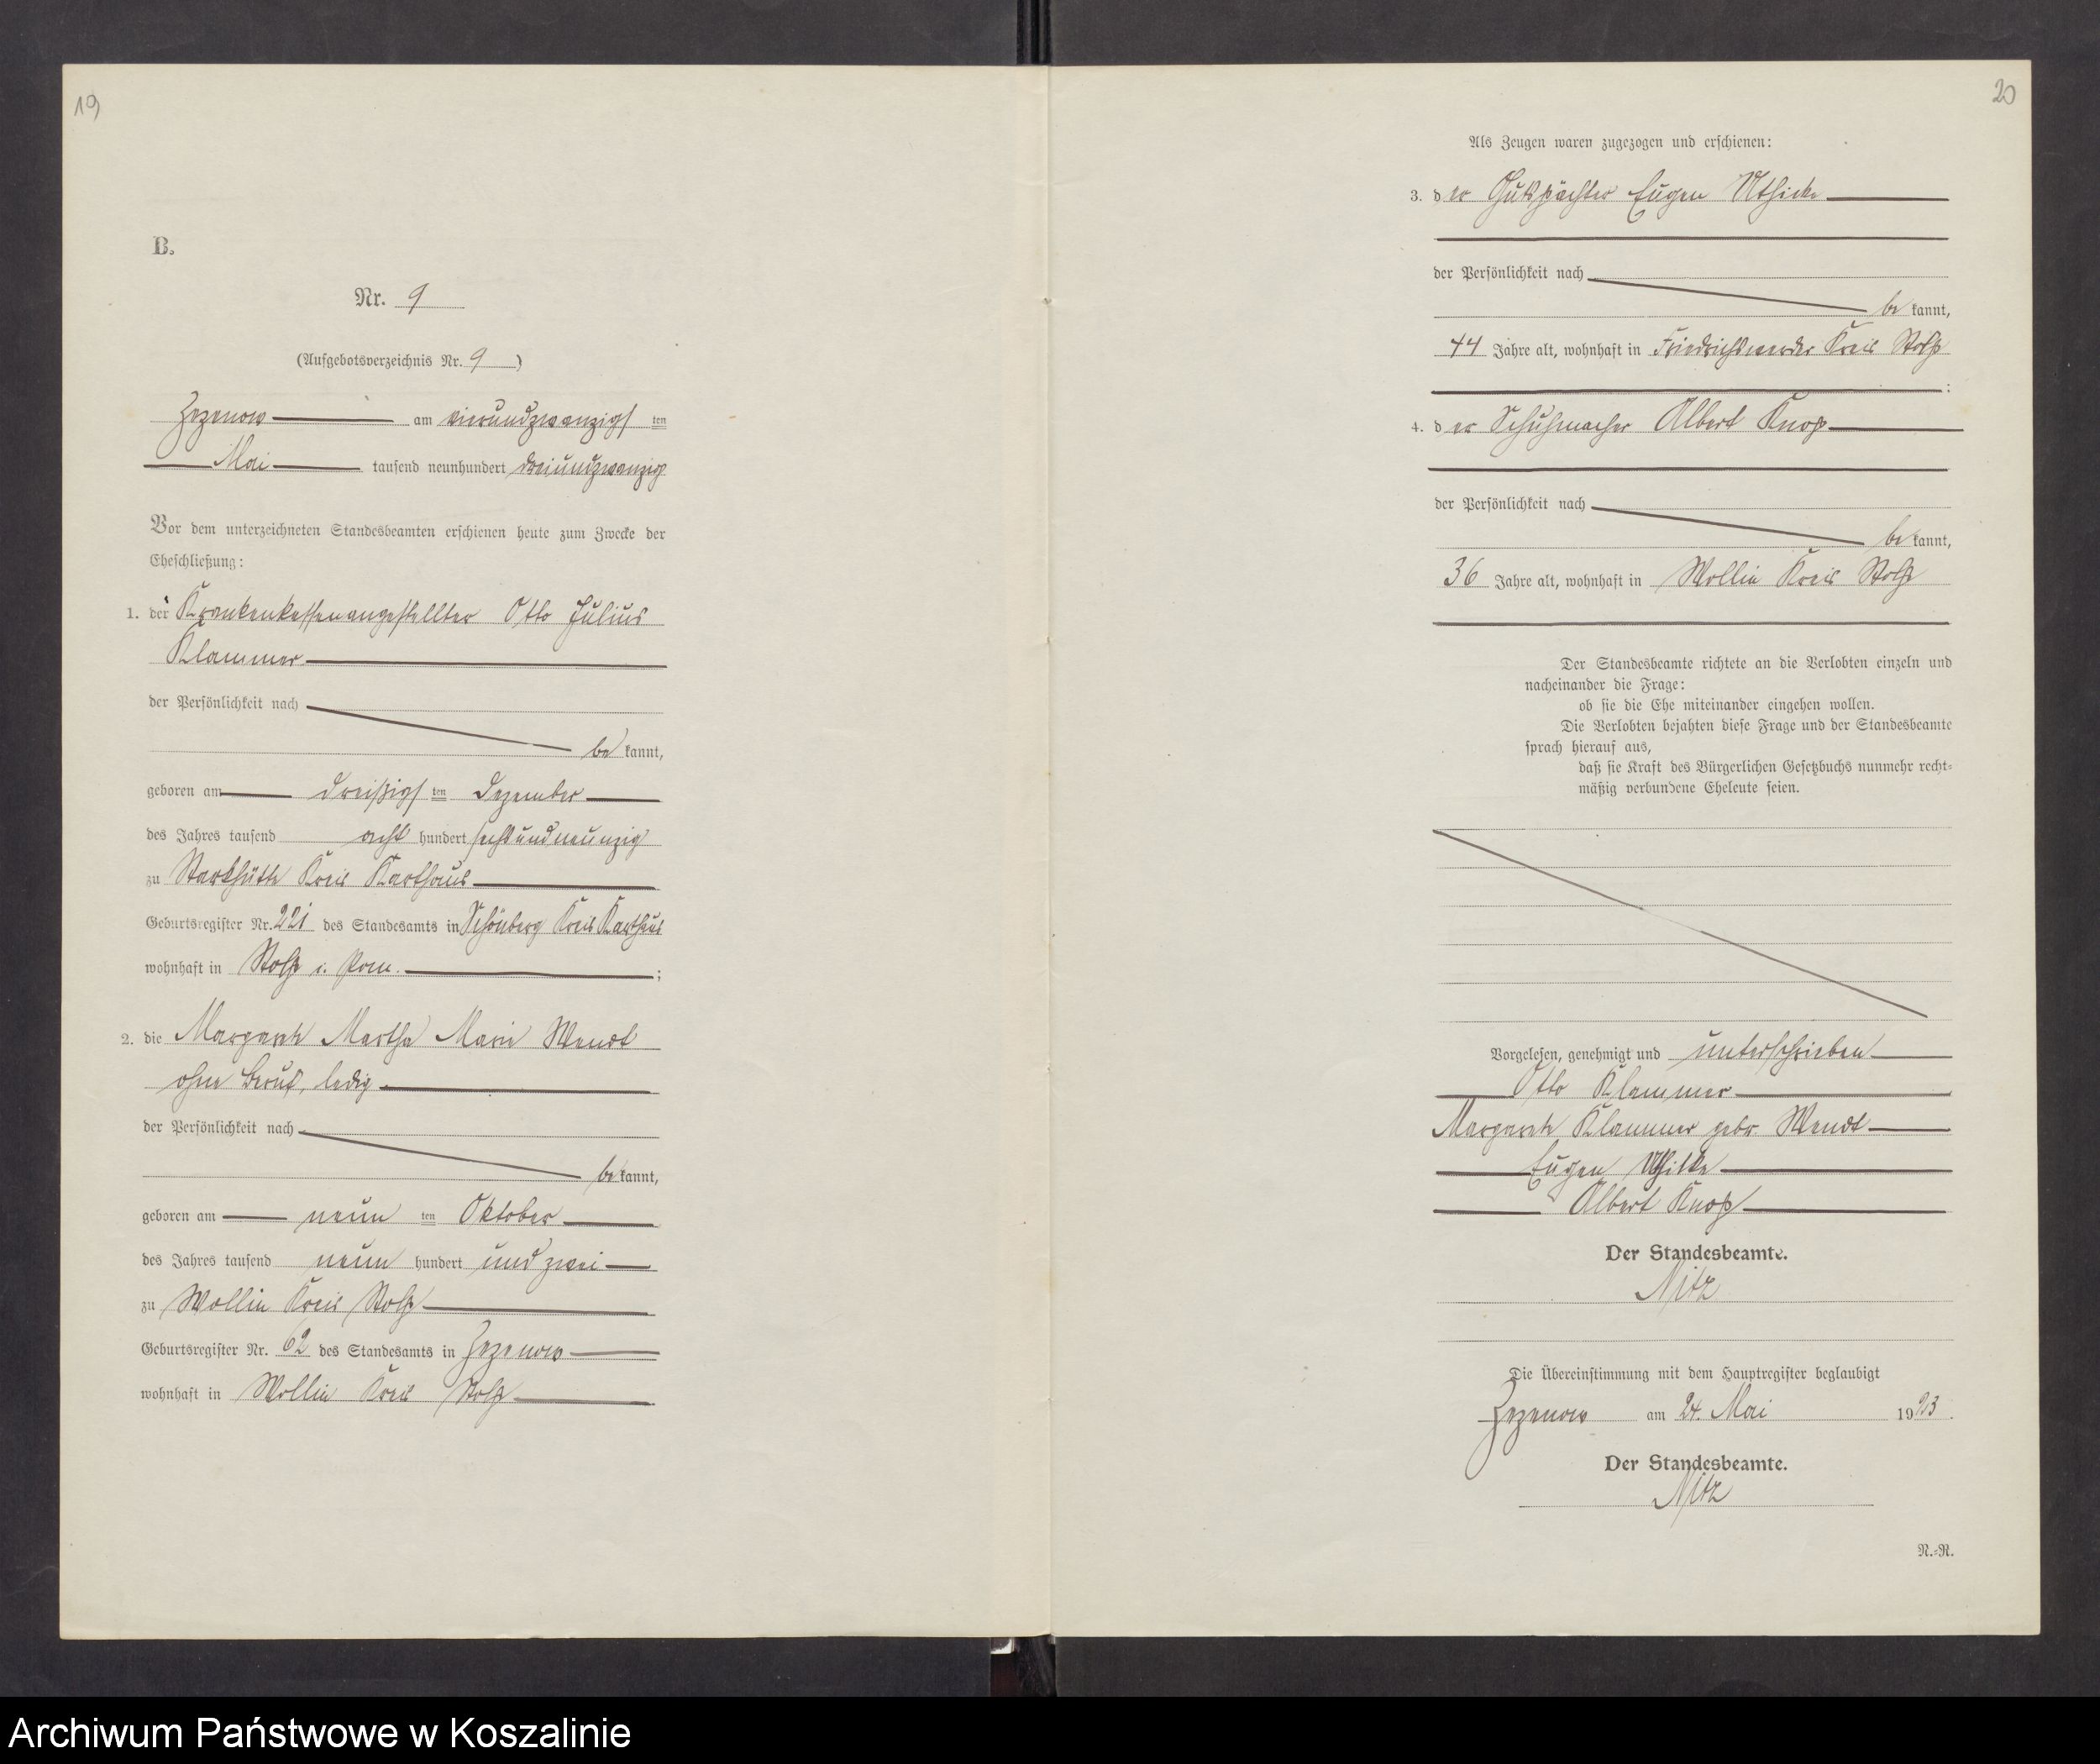 19
B.
Nr. 9
(Aufgebotsverzeichnis Nr. 9)
Zezenow am vierundzwanzigsten
Mai tausend neunhundert dreiundzwanzig
Vor dem unterzeichneten Standesbeamten erschienen heute zum Zwecke der
Eheschließung:
1. der Krankenkassenangestellter Otto Julius
Klammer
der Persönlichkeit nach
bekannt,
geboren am dreißigsten Dezember
des Jahres tausend acht hundert sechsundneunzig
zu Starkhütte Kreis Karthaus
Geburtsregister Nr. 221 des Standesamts in Schönberg Kreis Karthaus
wohnhaft in Stolp i. Pom.;
2. die Margarete Martha Marie Wendt
ohne Beruf, ledig
der Persönlichkeit nach
bekannt,
geboren am neunten Oktober
des Jahres tausend neun hundert und zwei
zu Wollin Kreis Stolp
Geburtsregister Nr. 62 des Standesamts in Zezenow
wohnhaft in Wollin Kreis Stolp
20
Als Zeugen waren zugezogen und erschienen:
3. der Gutspächter Eugen
der Persönlichkeit nach
bekannt,
44 Jahre alt, wohnhaft in Friedrichswerder Kreis Stolp
;
4. der Schuhmacher Albert Knop
der Persönlichkeit nach
bekannt,
36 Jahre alt, wohnhaft in Wollin Kreis Stolp
Der Standesbeamte richtete an die Verlobten einzeln und
nacheinander die Frage:
ob sie die Ehe miteinander eingehen wollen.
Die Verlobten bejahten diese Frage und der Standesbeamte
sprach hierauf aus,
daß sie Kraft des Bürgerlichen Gesetzbuchs nunmehr recht-
mäßig verbundene Eheleute seien.
Vorgelesen, genehmigt und unterschrieben
Otto Klammer
Margarete Klammer gebr. Wendt
Eugen
Albert Knop
Der Standesbeamte.
Nitz
Die Übereinstimmung mit dem Hauptregister beglaubigt
Zezenow am 24. Mai 1923.
Der Standesbeamte.
Nitz
N.-R.
Archiwum Państwowe w Koszalinie